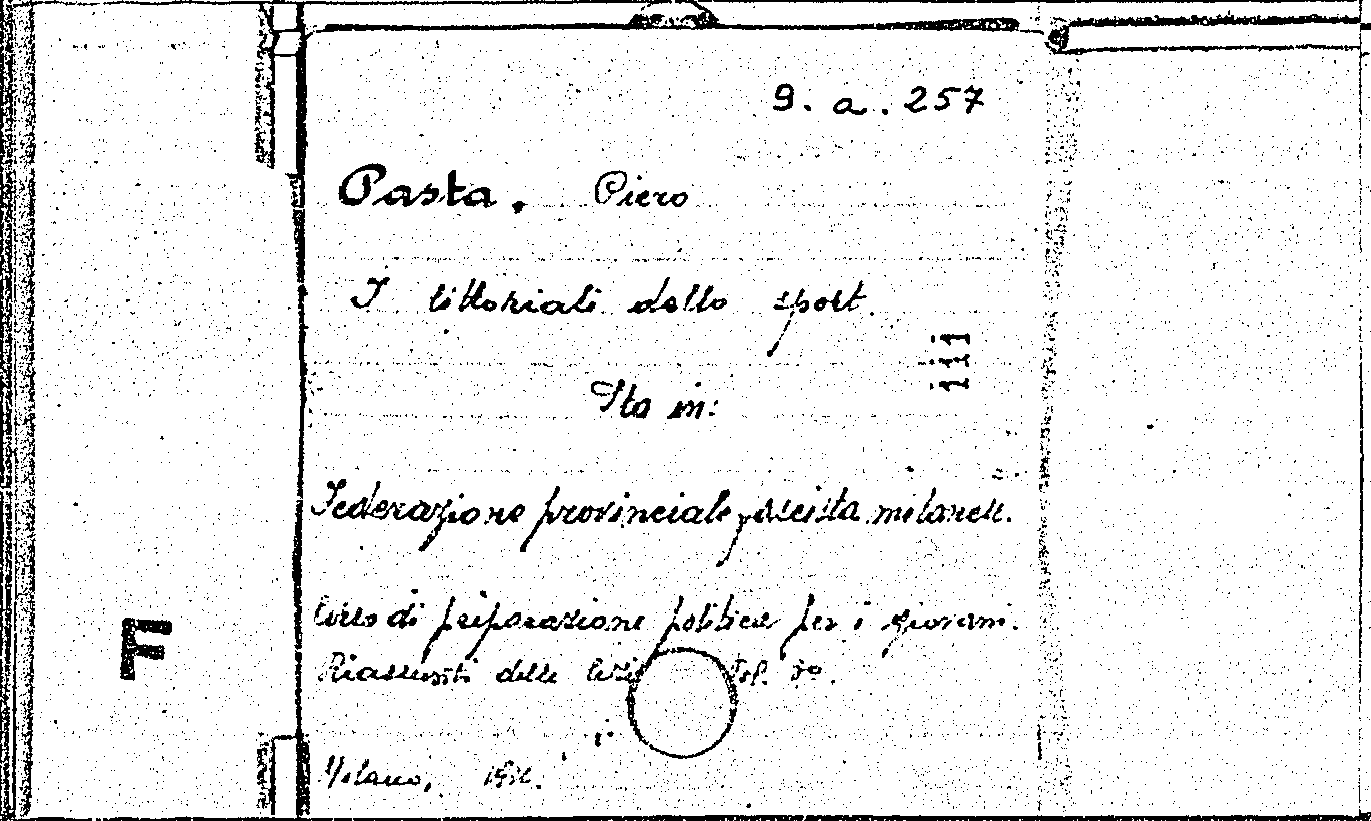 9. a. 257
Pasta. Piero
I littoriali dello sport.
iii
Sta in:
Federazione provinciale fascista milanese.
Corso di preparazione politica per i giovani.
Riassunti delle
F
Milano,